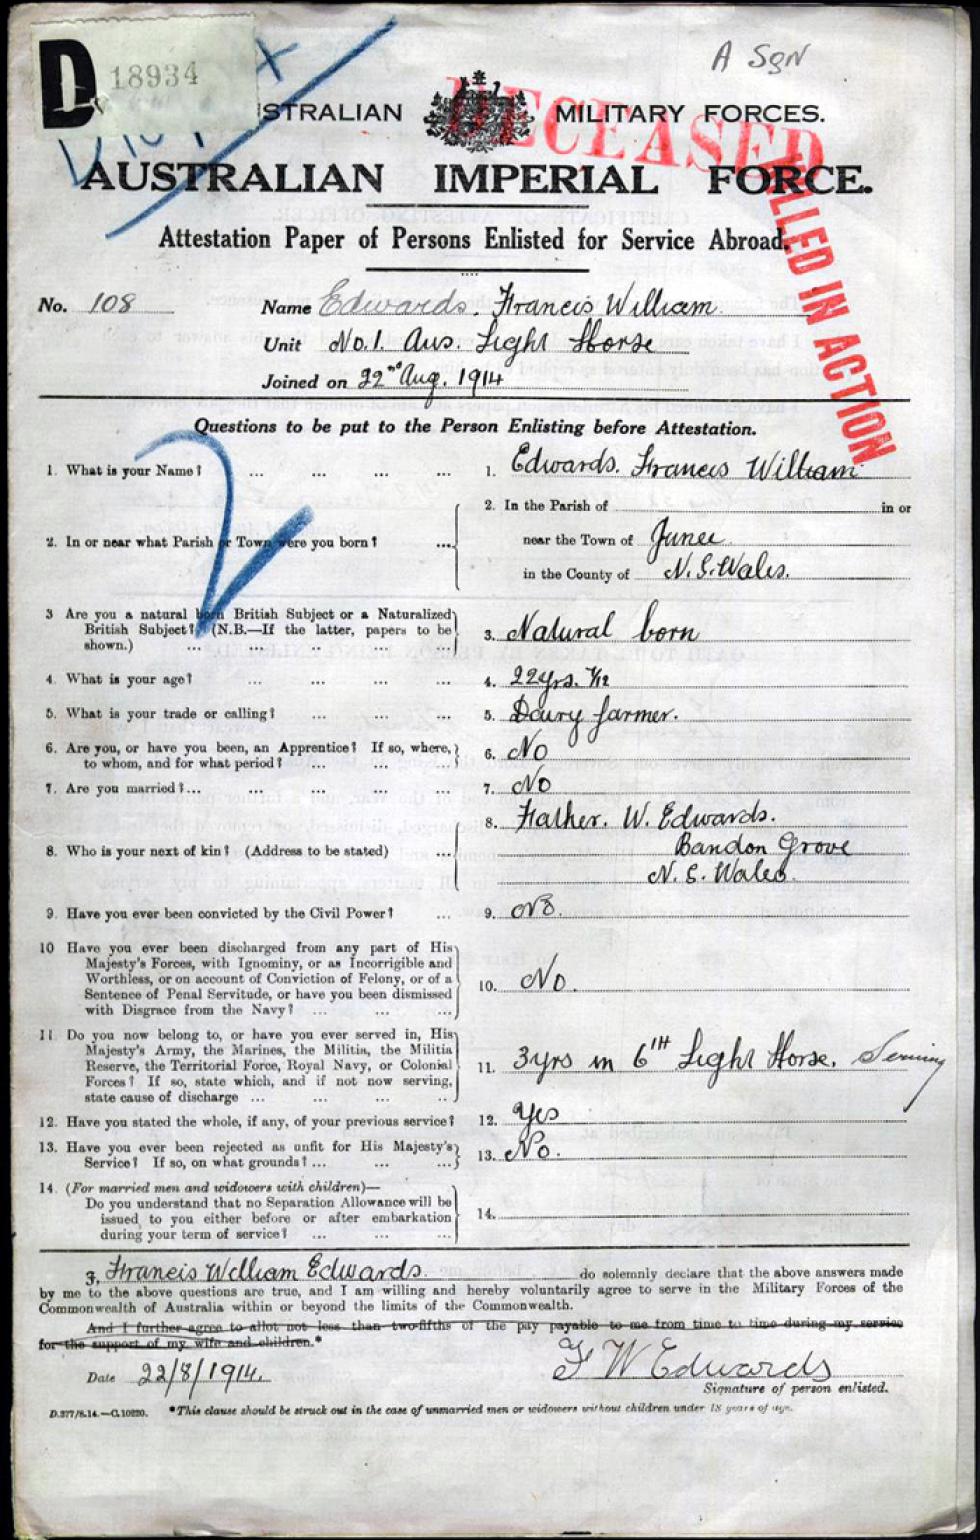 D 18934
A Sqn
AUSTRALIAN MILITARY FORCES.
DECEASED
AUSTRALIAN IMPERIAL FORCE.
KILLED IN ACTION
Attestation Paper of Persons Enlisted for Service Abroad.
No. 108 Name Edwards. Francis William
Unit No.1. Aus. Light Horse
Joined on 22nd Aug. 1914
Questions to be put to the Person Enlisting before Attestation.
2
1. What is your Name? ... ... ... ... 1. Edwards. Francis William
2. In or near what Parish or Town were you born? ... 2. In the Parish of in or
near the Town of Junee
in the County of N.S.Wales.
3 Are you a natural born British Subject or a Naturalized
British Subject? (N.B.—If the latter, papers to be
shown.) ... ... ... ... 3. Natural born
4. What is your age? ... ... ... ... 4. 22yrs. 1/12
5. What is your trade or calling? ... ... ... 5. Dairy farmer.
6. Are you, or have you been, an Apprentice? If so, where,
to whom, and for what period? ... ... ... 6. No
7. Are you married? ... ... ... ... 7. No
8. Who is your next of kin? (Address to be stated) ... 8. Father. W. Edwards.
Bandon Grove
N.S.Wales.
9. Have you ever been convicted by the Civil Power? ... 9. No.
10 Have you ever been discharged from any part of His
Majesty's Forces, with Ignominy, or as Incorrigible and
Worthless, or on account of Conviction of Felony, or of a
Sentence of Penal Servitude, or have you been dismissed
with Disgrace from the Navy? ... ... ... 10. No.
11 Do you now belong to, or have you ever served in, His
Majesty's Army, the Marines, the Militia, the Militia
Reserve, the Territorial Force, Royal Navy, or Colonial
Forces? If so, state which, and if not now serving,
state cause of discharge ... ... ... ... 11. 3yrs in 6TH Light Horse. Serving
12. Have you stated the whole, if any, of your previous service? 12. Yes
13. Have you ever been rejected as unfit for His Majesty's
Service? If so, on what grounds? ... ... ... 13. No.
14. (For married men and widowers with children)—
Do you understand that no Separation Allowance will be
issued to you either before or after embarkation
during your term of service? ... ... ... 14.
I, Francis William Edwards. do solemnly declare that the above answers made
by me to the above questions are true, and I am willing and hereby voluntarily agree to serve in the Military Forces of the
Commonwealth of Australia within or beyond the limits of the Commonwealth.
And I further agree to allot not less than two-fifths of the pay payable to me from time to time during my service
for the support of my wife and children.*
Date 22/8/1914. F W Edwards
Signature of person enlisted.
D.377/8.14.—C.10220. *This clause should be struck out in the case of unmarried men or widowers without children under 18 years of age.